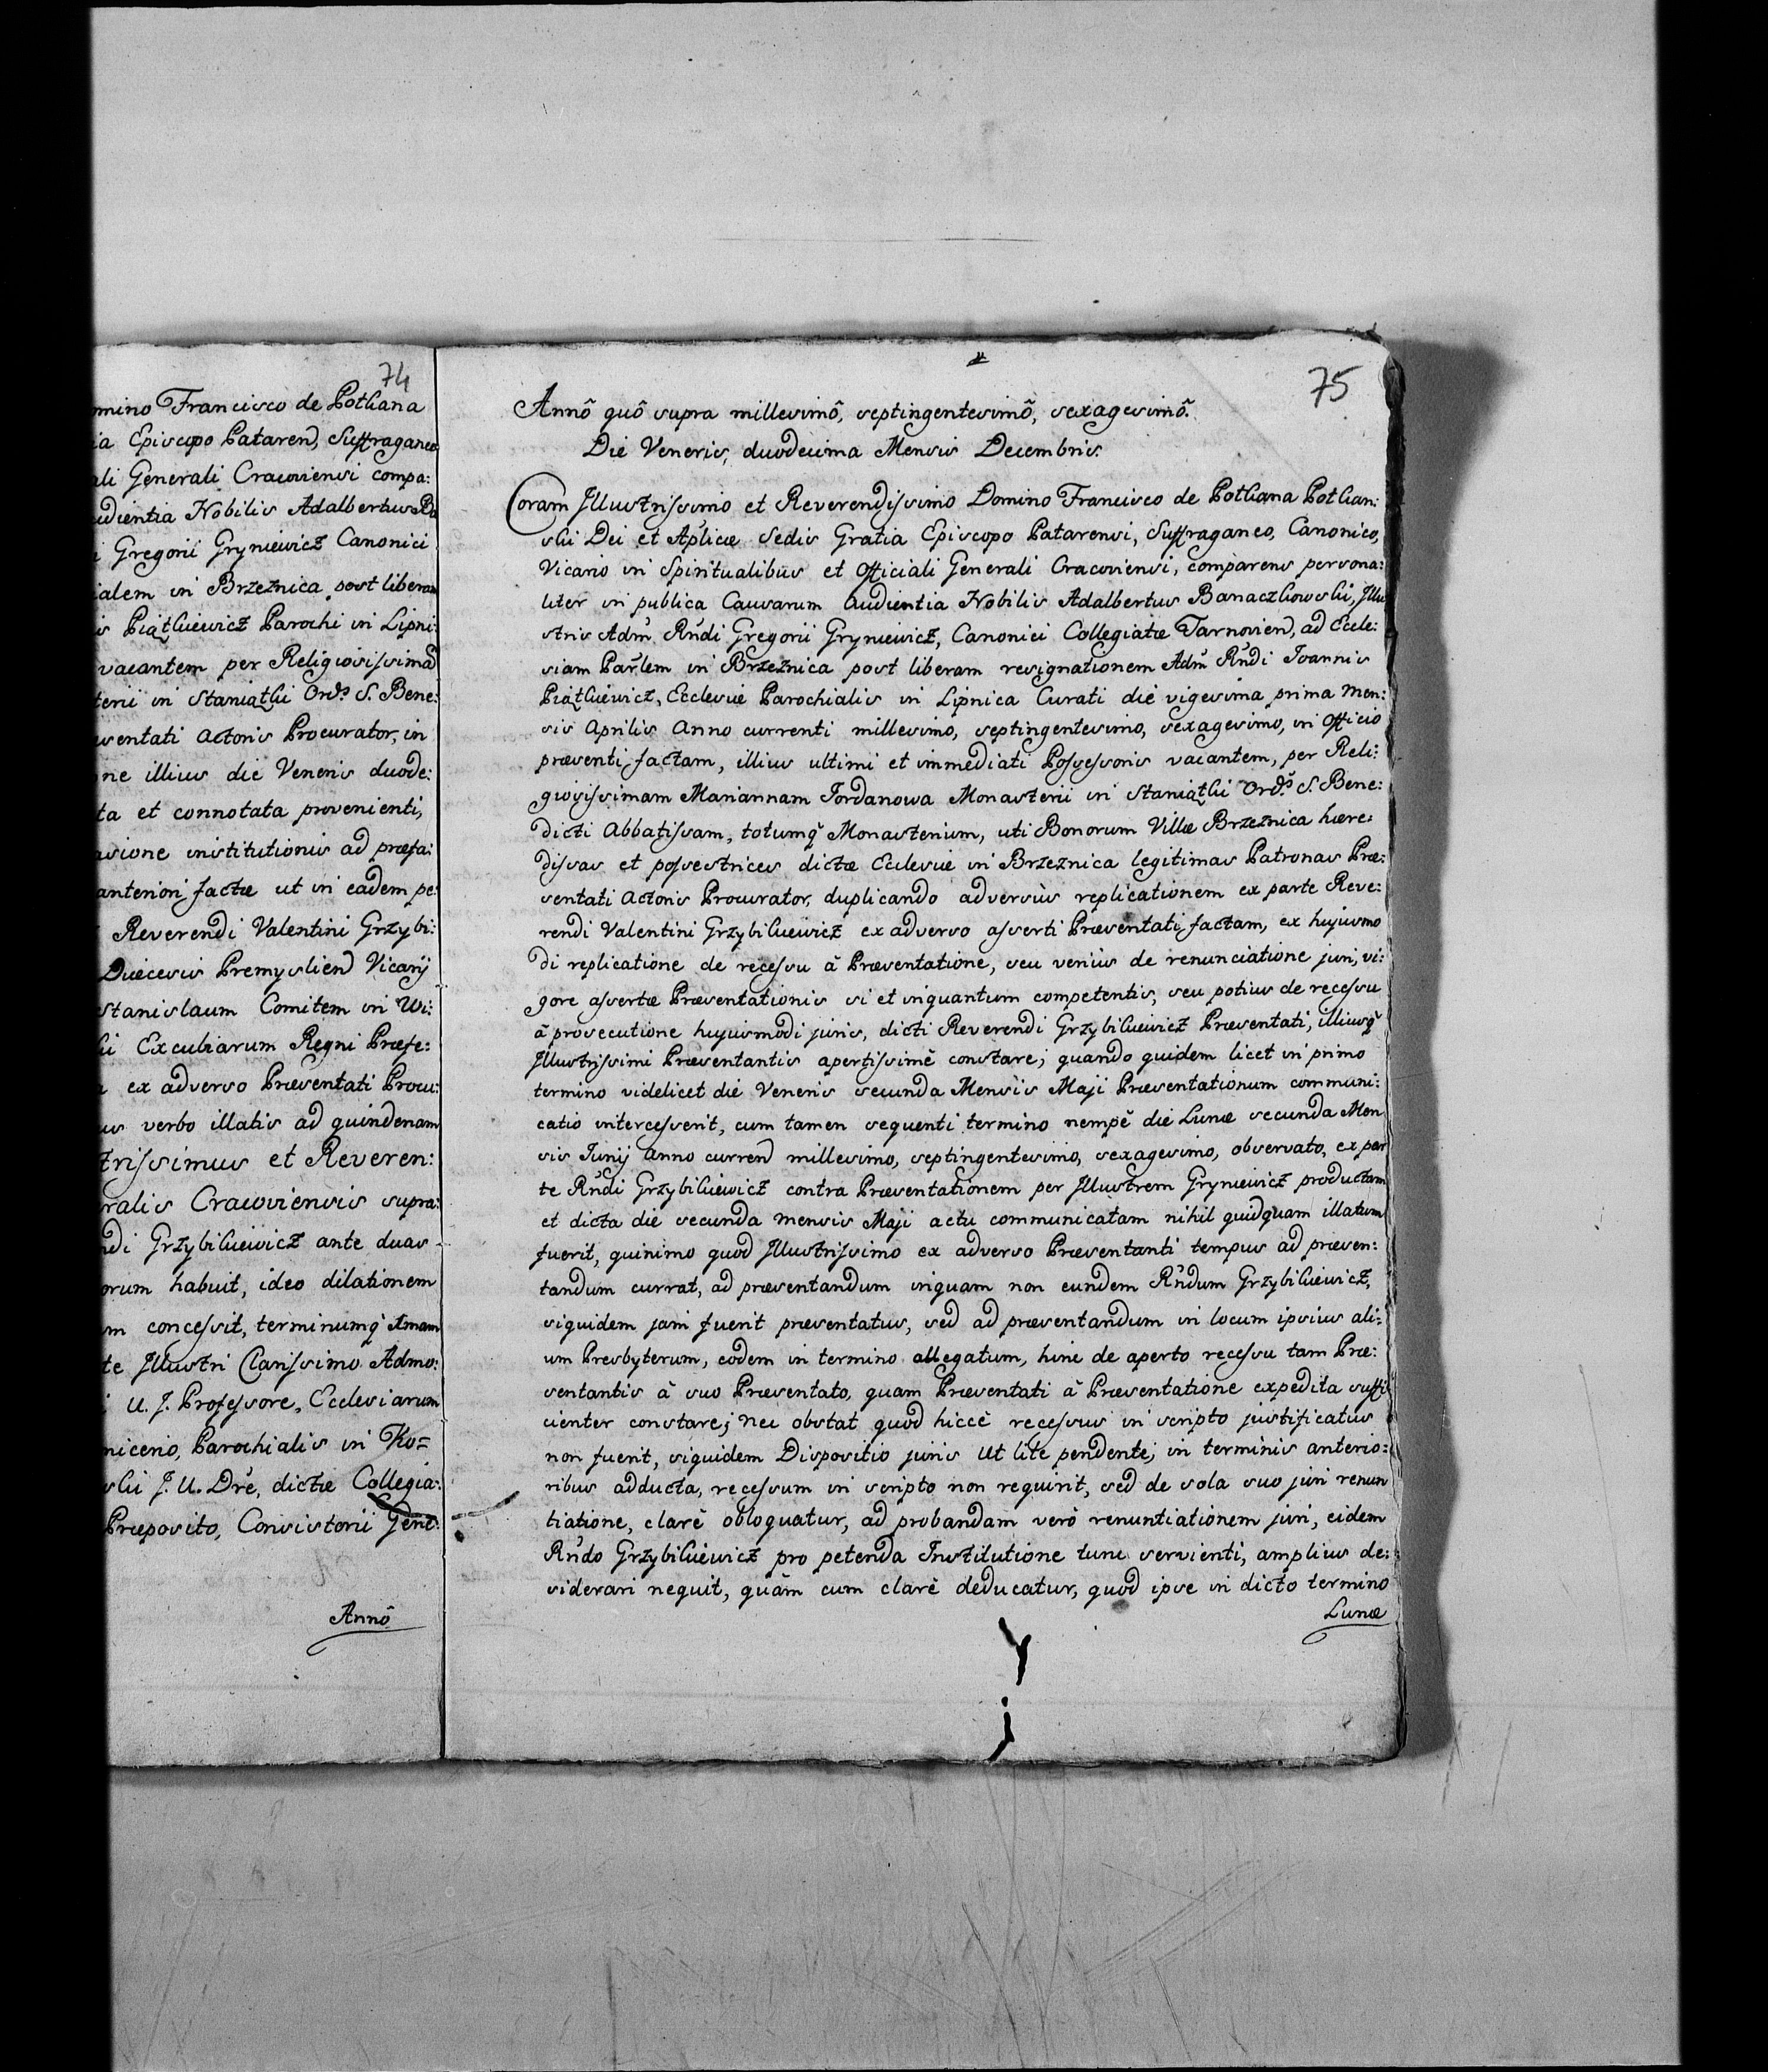 74
mino Francisco de Potkana
ia Episcopo Pataren, Suffraganeo
ali Generali Cracoviensi compa:
udientia Nobilis Adalbertus Ba
i Gregorii Gryniewicz Canonici
ialem in Brzeznica post liberam
is Piątkiewicz Parochi in Lipni:
vacantem per Religiosissimã
terii in Staniątki Ord.s S. Bene:
sentati Actoris Procurator, in
ne illius die Veneris duode:
ta et connotata provenienti,
asione institutionis ad præfa:
anteriori factæ ut in eadem pe:
Reverendi Valentini Grzybi:
Diæcesis Premyslien Vicarij
Stanislaum Comitem in Wi:
ki Excubiarum Regni Præfe:
ex adverso Præsentati Procu:
us verbo illatis ad quindenam
trissimus et Reveren:
ralis Cracoviensis supra:
di Grzybikiewicz ante duas
orum habuit, ideo dilationem
m concessit, terminumq́
te Illustri Clarissimo Admo:
U. J. Professore, Ecclesiarum
nicerio, Parochialis in Ko=
ski J. U. Dre, dictæ Collegia:
Præposito, Consistorii Gene:
Annô
75
Annô quô supra millesimô, septingentesimô, sexagesimô.
Die Veneris, duodecima Mensis Decembris.
Coram Illustrissimo et Reverendissimo Domino Francisco de Potkana Potkan:
ski Dei et Aplicæ Sedis Gratia Episcopo Patarensi, Suffraganeo, Canonico,
Vicario in Spiritualibus et Officiali Generali Cracoviensi, comparens persona:
liter in publica Causarum Audientia Nobilis Adalbertus Banaczkowski, Illu
stris Adm̃ Rñdi Gregorii Gryniewicz, Canonici Collegiatæ Tarnovien, ad Eccle:
siam Parlem in Brzeznica post liberam resignationem Adm̃ Rñdi Joannis
Piątkiewicz, Ecclesiæ Parochialis in Lipnica Curati die vigesima prima Men:
sis Aprilis Anno currenti millesimo, septingentesimo, sexagesimo, in Officio
præsenti factam, illius ultimi et immediati Possessoris vacantem, per Reli:
giosissimam Mariannam Jordanowa Monasterii in Staniątki Ord.s S. Bene:
dicti Abbatissam, totumq́ Monasterium, uti Bonorum Villæ Brzeznica hære:
dissas et possestrices dictæ Ecclesiæ in Brzeznica legitimas Patronas Præ:
sentati Actoris Procurator, duplicando adversùs replicationem ex parte Reve:
rendi Valentini Grzybikiewicz ex adverso asserti Præsentati factam, ex hujusmo
di replicatione de recessu à Præsentatione, seu verius de renunciatione juri, vi:
gore assertæ Præsentationis si et inquantum competentis, seu potius de recessu
à prosecutione hujusmodi juris, dicti Reverendi Grzybikiewicz Præsentati, illiusq́
Illustrissimi Præsentantis apertissimè constare; quando quidem licet in primo
termino videlicet die Veneris secunda Mensis Maji Præsentationum communi:
catio intercesserit, cum tamen sequenti termino nempè die Lunæ secunda Men
sis Junij Anno curren millesimo, septingentesimo, sexagesimo, observato, ex par
te Rñdi Grzybikiewicz contra Præsentationem per Illustrem Gryniewicz productam
et dicta die secunda mensis Maji actu communicatam nihil quidquam illatum
fuerit, quinimo quod Illustrissimo ex adverso Præsentanti tempus ad præsen:
tandum currat, ad præsentandum inquam non eundem Rñdum Grzybikiewicz,
siquidem jam fuerit præsentatus, sed ad præsentandum in locum ipsius ali:
um Presbyterum, eodem in termino allegatum, hinc de aperto recessu tam Præ:
sentantis à suo Præsentato, quam Præsentati à Præsentatione expedita suffi
cienter constare; nec obstat quod hiccè recessus in scripto justificatus
non fuerit, siquidem Dispositio juris Ut lite pendente, in terminis anterio:
ribus adducta, recessum in scripto non requirit, sed de sola suo juri renun
tiatione, clarè obloquatur, ad probandam verò renuntiationem juri, eidem
Rñdo Grzybikiewicz pro petenda Institutione tunc servienti, amplius de:
siderari nequit, quàm cum clarè deducatur, quod ipse in dicto termino
Lunæ